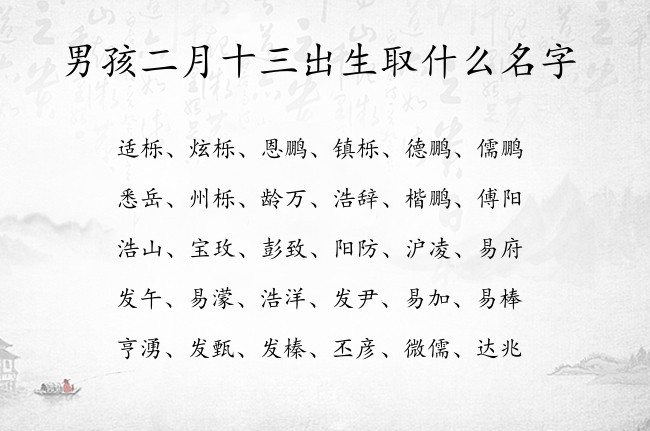 男孩二月十三出生取什么名字
适栎、炫栎、恩鹏、镇栎、德鹏、儒鹏
悉岳、州栎、龄万、浩辞、楷鹏、傅阳
浩山、宝玫、彭致、阳防、沪凌、易府
发午、易濛、浩洋、发尹、易加、易棒
亨湧、发甄、发榛、丕彦、微儒、达兆